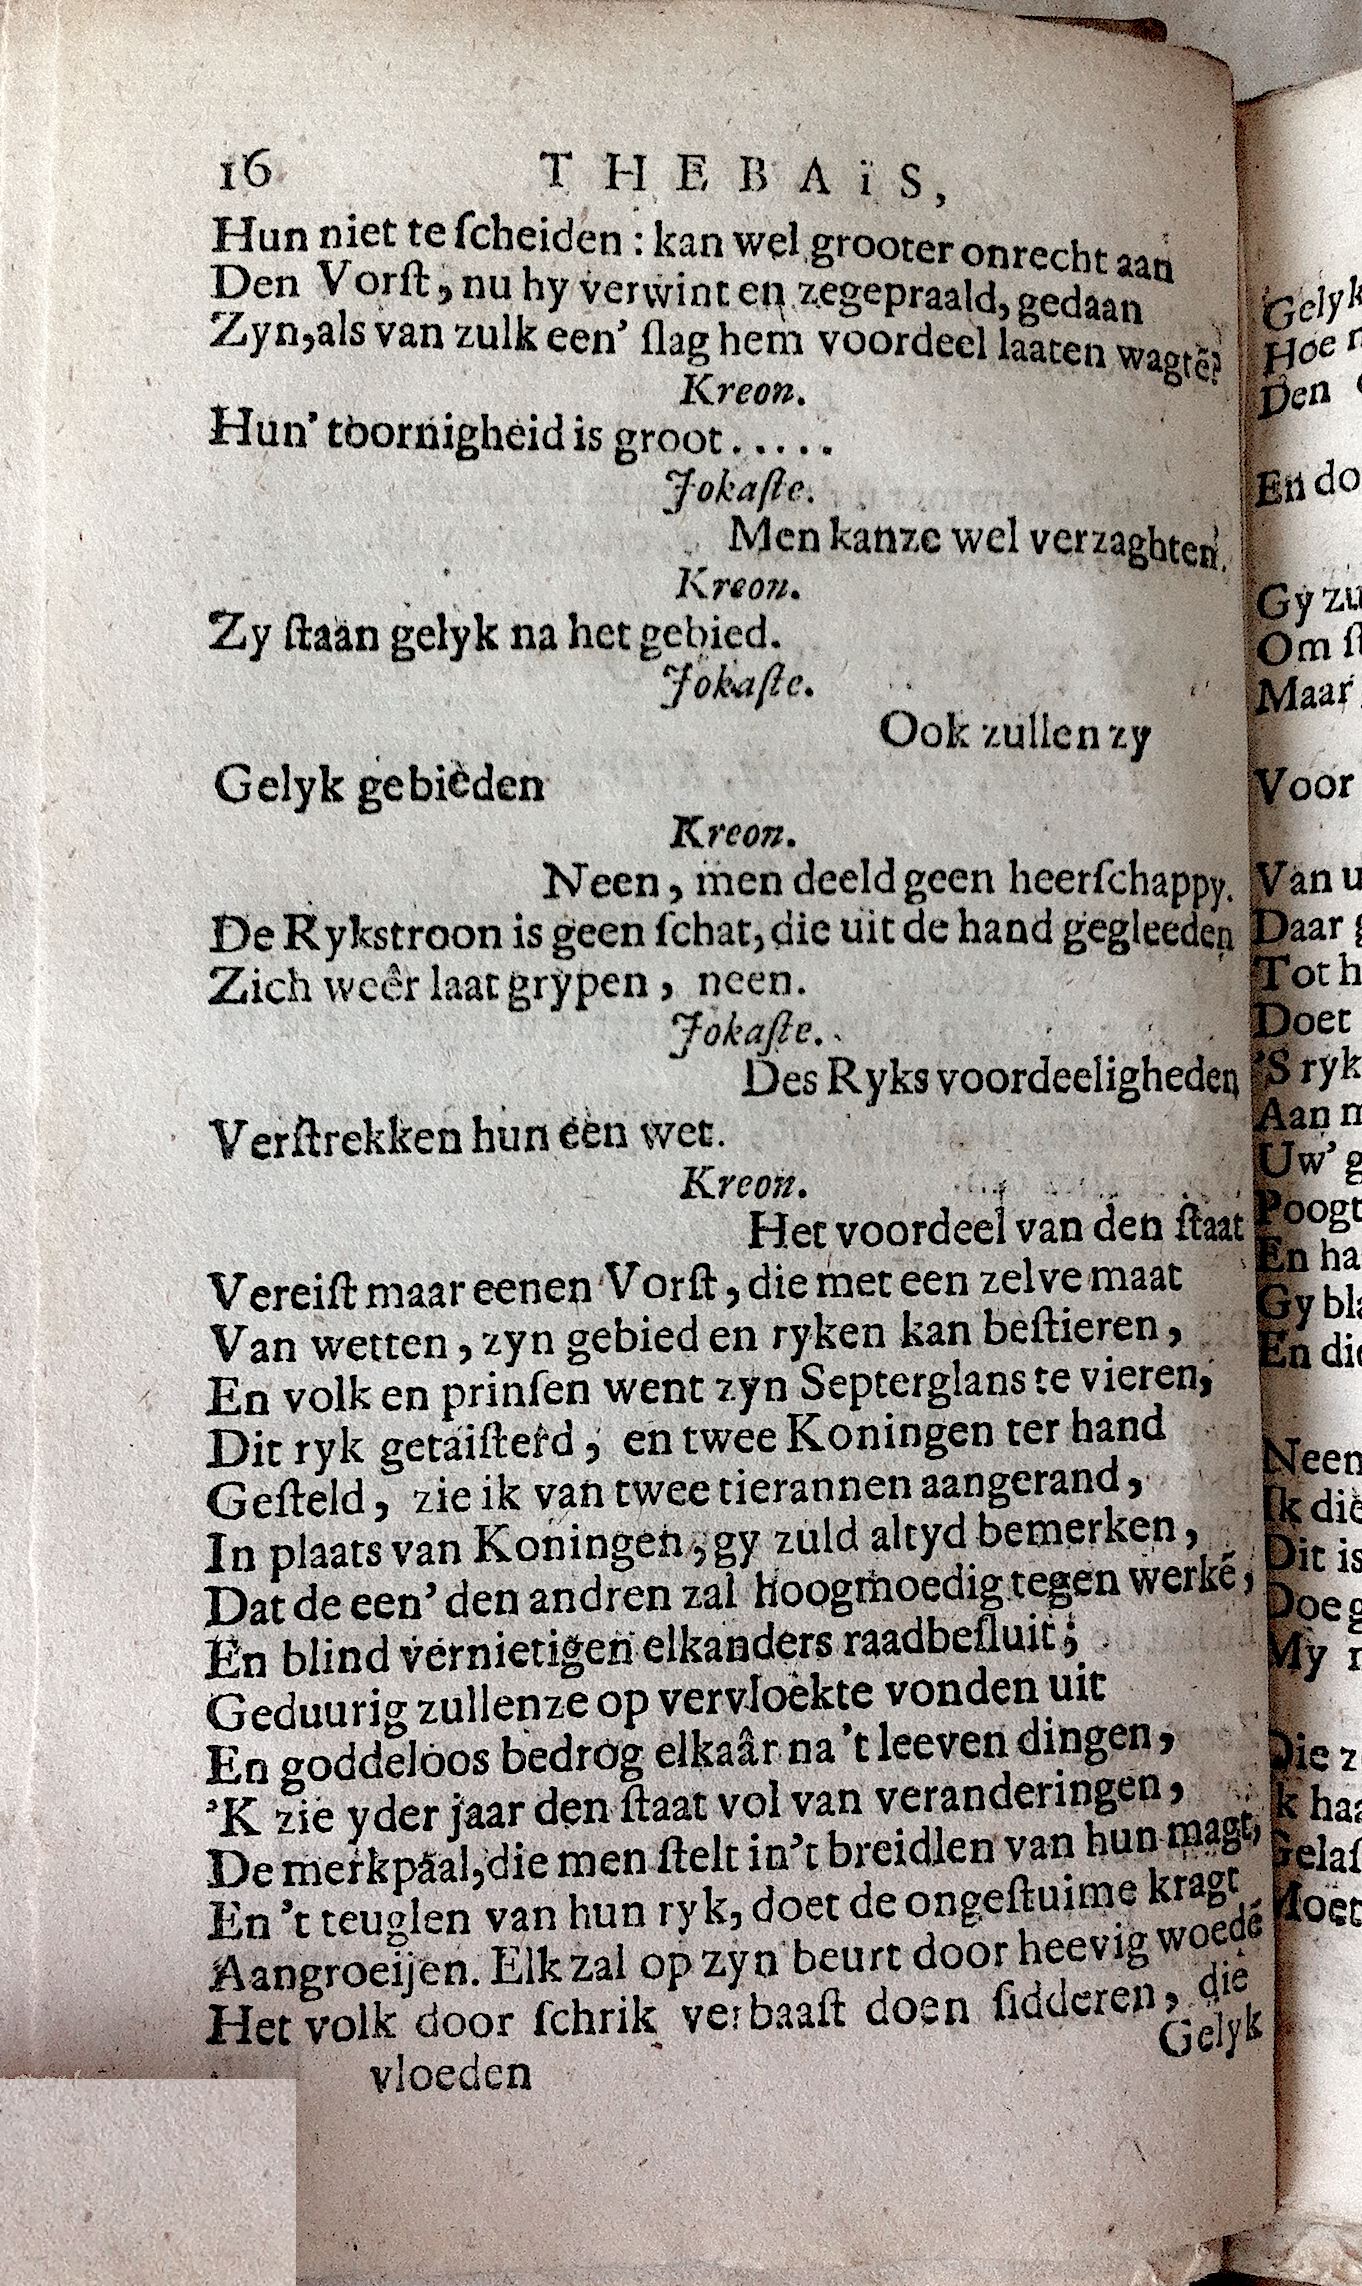 16 THEBAïS,
Hun niet te ſcheiden : kan wel grooter onrecht aan
Den Vorſt, nu hy verwint en zegepraald, gedaan
Zyn, als van zulk een' ſlag hem voordeel laaten wagtē?
Kreon.
Hun' toornigheid is groot.....
Jokaſte.
Men kanze wel verzaghten.
Kreon.
Zy ſtaan gelyk na het gebied.
Jokaſte.
Ook zullen zy
Gelyk gebieden
Kreon.
Neen, men deeld geen heerſchappy.
De Rykstroon is geen ſchat, die uit de hand gegleeden
Zich weêr laat grypen, neen.
Jokaſte.
Des Ryks voordeeligheden
Verſtrekken hun een wet.
Kreon.
Het voordeel van den ſtaat
Vereiſt maar eenen Vorſt, die met een zelve maat
Van wetten, zyn gebied en ryken kan beſtieren,
En volk en prinſen went zyn Septerglans te vieren,
Dit ryk getaiſterd, en twee Koningen ter hand
Geſteld, zie ik van twee tierannen aangerand,
In plaats van Koningen, gy zuld altyd bemerken,
Dat de een' den andren zal hoogmoedig tegen werkē,
En blind vernietigen elkanders raadbeſluit;
Geduurig zullenze op vervloekte vonden uit
En goddeloos bedrog elkaâr na 't leeven dingen,
'K zie yder jaar den ſtaat vol van veranderingen,
De merkpaal, die men ſtelt in't breidlen van hun magt,
En 't teuglen van hun ryk, doet de ongeſtuime kragt
Aangroeijen. Elk zal op zyn beurt door heevig woedē
Het volk door ſchrik verbaaſt doen ſidderen, die
Gelyk
vloeden
Gelyk
Hoe
Den
En do
Gy zu
Om ſt
Maar
Voor
Van u
Daar g
Tot h
Doet
'S ryk
Aan m
Uw' g
Poogt
En ha
Gy bla
En die
Neen
Ik die
Dit is
Doe g
My
Die z
Ik haa
Gelaſ
Moet